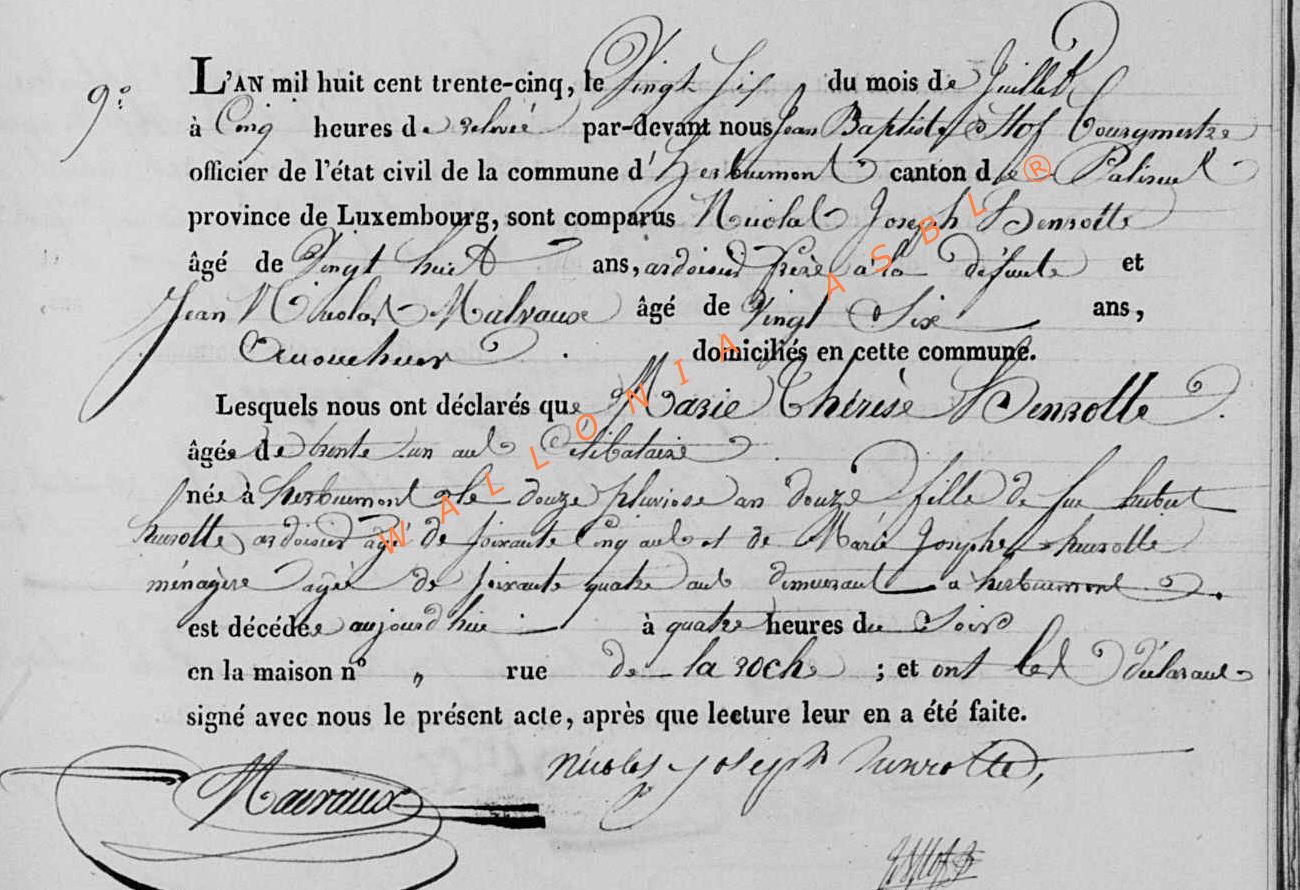 9e
L'AN mil huit cent trente-cinq, le Vingt Six du mois de Juillet
à Cinq heures de relevée par-devant nous Jean Baptiste Stof Bourgmestre
officier de l'état civil de la commune d'herbeumont canton de Paliseul
province de Luxembourg, sont comparus Nicolas Joseph Henrotte
âgé de Vingt huit ans, ardoisier frère à la défunte et
Jean Nicolas Malvaux âgé de Vingt Six ans,
domiciliés en cette commune.
Lesquels nous ont déclarés que Marie Thérèse Henrotte
âgée de trente un ans Célibataire
née à herbeumont le douze pluviose an douze fille de feu hubert
henrotte ardoisier agé de soixante Cinq ans et de Marie Josephe henrotte
ménagère agée de soixante quatre ans demeurant a herbeumont
est décédée aujourd'hui à quatre heures du Soir
en la maison n° " rue de la roche ; et ont les déclarans
signé avec nous le présent acte, après que lecture leur en a été faite.
Mauvaux Nicolas Joseph henrotte
WALLONIA ASBL ®